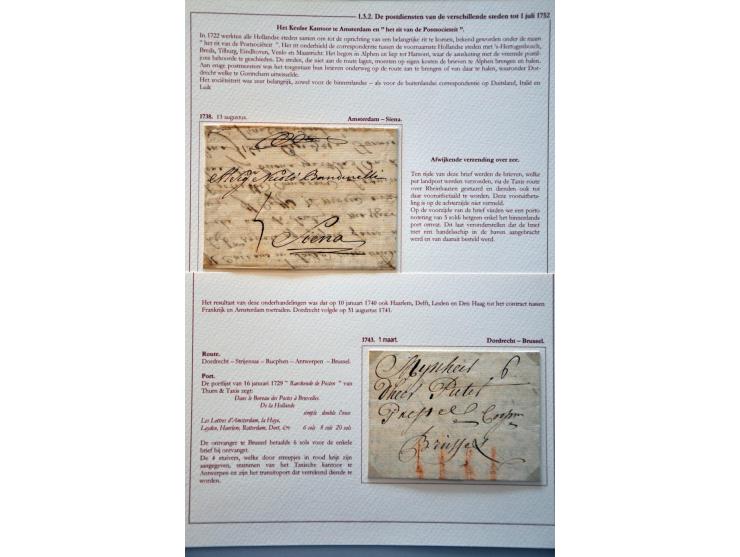 1.3.2. De postdiensten van de verschillende steden tot 1 juli 1752
Het Keulse Kantoor te Amsterdam en " het rit van de Postsocieteit ".
In 1722 werkten alle Hollandse steden samen om tot de oprichting van een belangrijke rit te komen, bekend geworden onder de naam
" het rit van de Postsociëteit ". Het rit onderhield de correspondentie tussen de voornaamste Hollandse steden met 's-Hertogenbosch,
Breda, Tilburg, Eindhoven, Venlo en Maastricht. Het begon in Alphen en liep tot Hamont, waar de aansluiting met de vreemde postilj-
jons behoorde te geschieden. De steden, die niet aan de route lagen, moesten op eigen kosten de brieven te Alphen brengen en halen.
Aan enige postmeesters was het toegestaan hun brieven onderweg op de route aan te brengen of van daar te halen, waaronder Dor-
drecht welke te Gorinchem uitwisselde.
Het sociëteitsrit was zeer belangrijk, zowel voor de binnenlandse – als voor de buitenlandse correspondentie op Duitsland, Italië en
Luik
1738. 13 augustus.
Amsterdam – Siena.
Siena
Afwijkende verzending over zee.
Ten tijde van deze brief werden de brieven, welke
per landpost werden verzonden, via de Taxis route
over Rheinhausen gestuurd en dienden ook tot
daar vooruitbetaald te worden. Deze vooruitbeta-
ling is op de achterzijde niet vermeld.
Op de voorzijde van de brief vinden we een porto-
notering van 3 soldi hetgeen enkel het binnenlandse
port omvat. Dit laat veronderstellen dat de brief
met een handelsschip in de haven aangebracht
werd en van daaruit besteld werd.
Het resultaat van deze onderhandelingen was dat op 10 januari 1740 ook Haarlem, Delft, Leiden en Den Haag tot het contract tussen
Frankrijk en Amsterdam toetraden. Dordrecht volgde op 31 augustus 1741.
1743. 1 maart.
Dordrecht – Brussel.
Route.
Dordrecht – Strijensas – Bucphen – Antwerpen – Brussel.
Port.
De portlijst van 16 januari 1729 " Raerkonde de Posten " van
Thurn & Taxis zegt:
Dans le Bureau des Postes à Bruxelles
De la Hollande
simple double l'once
Les Lettres d'Amsterdam, la Haye,
Leyden, Haerlem, Rotterdam, Dort, &c 6 sols 8 sols 20 sols
De ontvanger te Brussel betaalde 6 sols voor de enkele
brief bij ontvangst.
De 4 stuivers, welke door streepjes in rood krijt zijn
aangegeven, stammen van het Taxische kantoor te
Antwerpen en zijn het transitoport dat verrekend diende te
worden.
Mijnheer 6
Dheer Pieter
Brussel